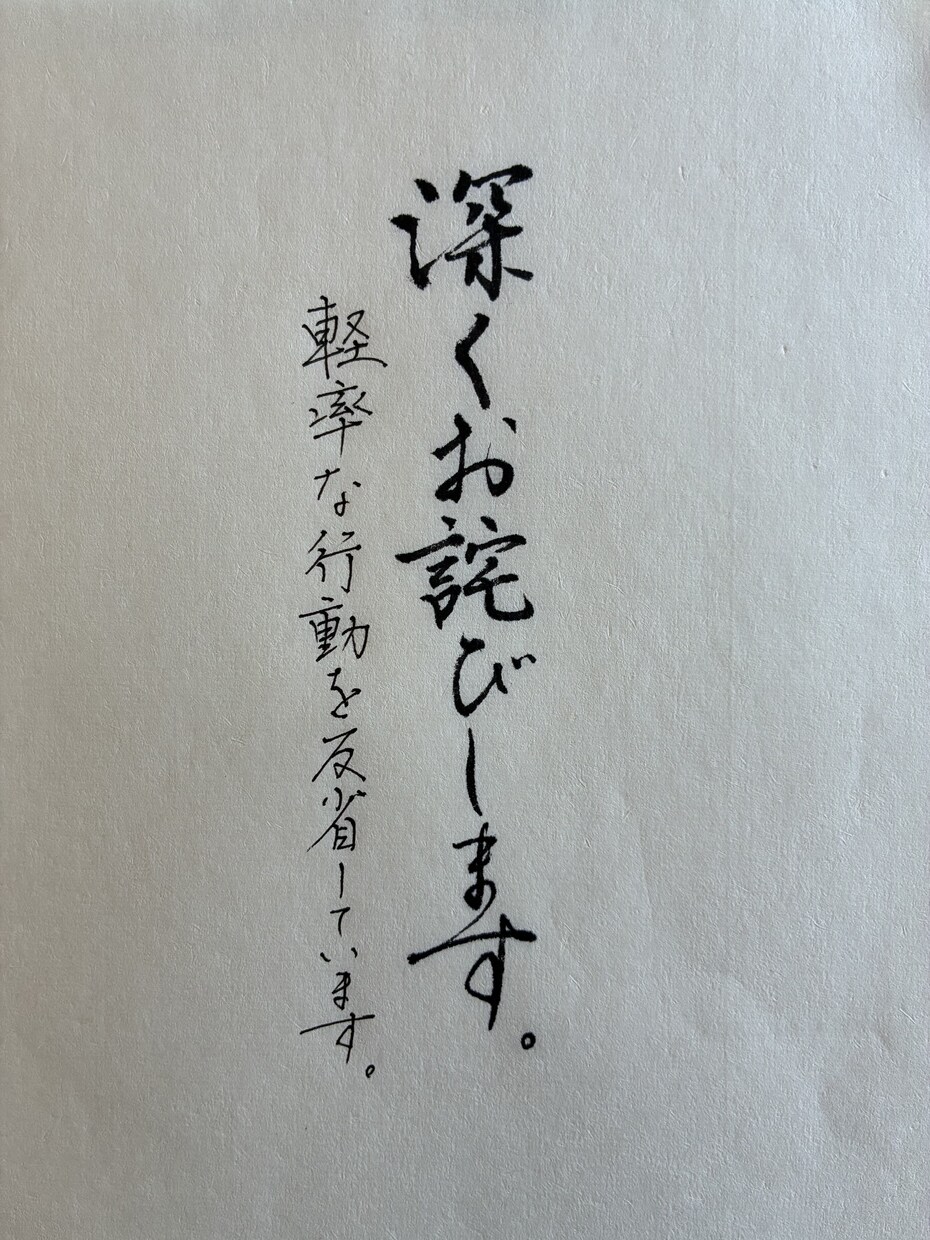 深くお詫びします。
軽率な行動を反省しています。